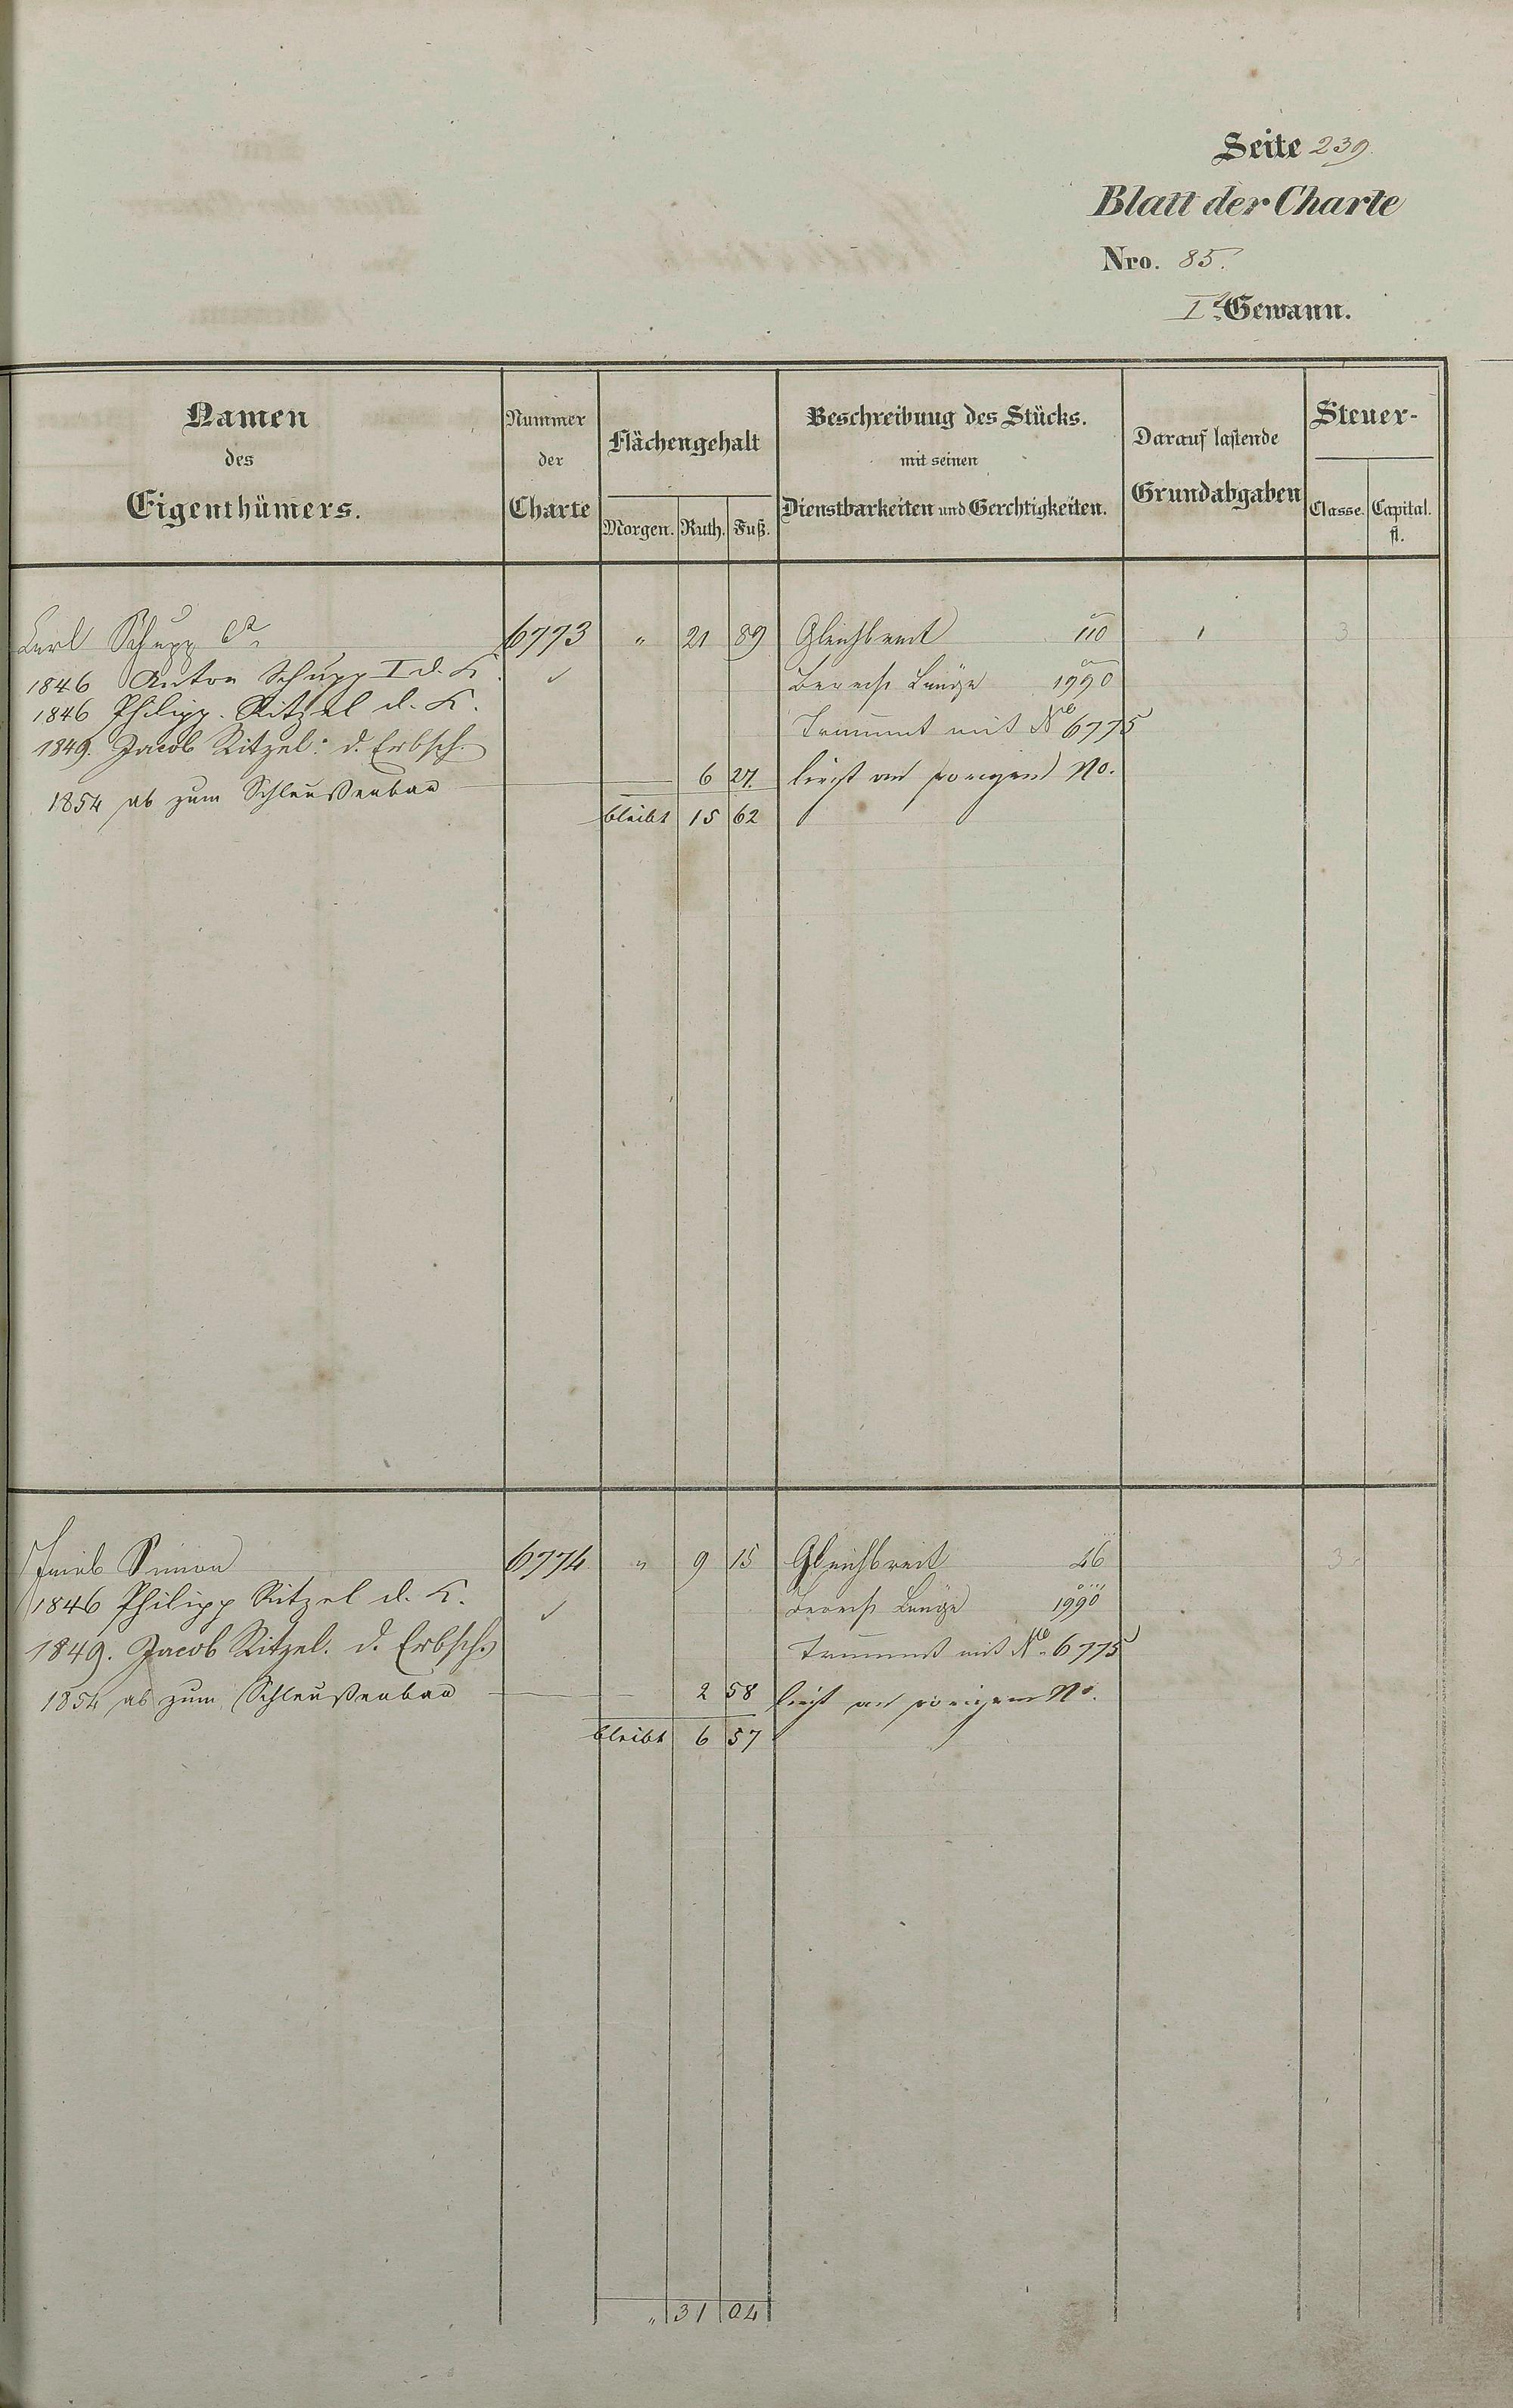 Seite 239
Blatt der Charte
Nro. 85.
I. Gewann.
Namen des Eigenthümers.
Nummer der Charte
Flächengehalt
Morgen. Ruth. Fuß.
Beschreibung des Stücks.
mit seinen
Dienstbarkeiten und Gerchtigkeiten.
Darauf lastende
Grundabgaben
Steuer-
Classe. Capital.
fl.
Carl Schupp 6773 " 21 89 Gleichbreit 110 3
1846 Anton Schupp I d. K. ✓ Berech Länge 1990
1846 Philipp Ritzel d. K. Trummt mit No 6775
1849. Jacob Ritzel: d. Erbsch.
1854 ab zum Schleußenbau 6 27. liegt an vorigem No.
bleibt 15 62
Jacob Simon 6774 " 9 15 Gleichbreit 46 3
1846 Philipp Ritzel d. K. ✓ Berech Länge 1990
1849. Jacob Ritzel. d. Erbsch. Trummt mit No. 6775
1854 ab zum Schleußenbau 2 58 liegt an vorigem No.
bleibt 6 57
" 31 04